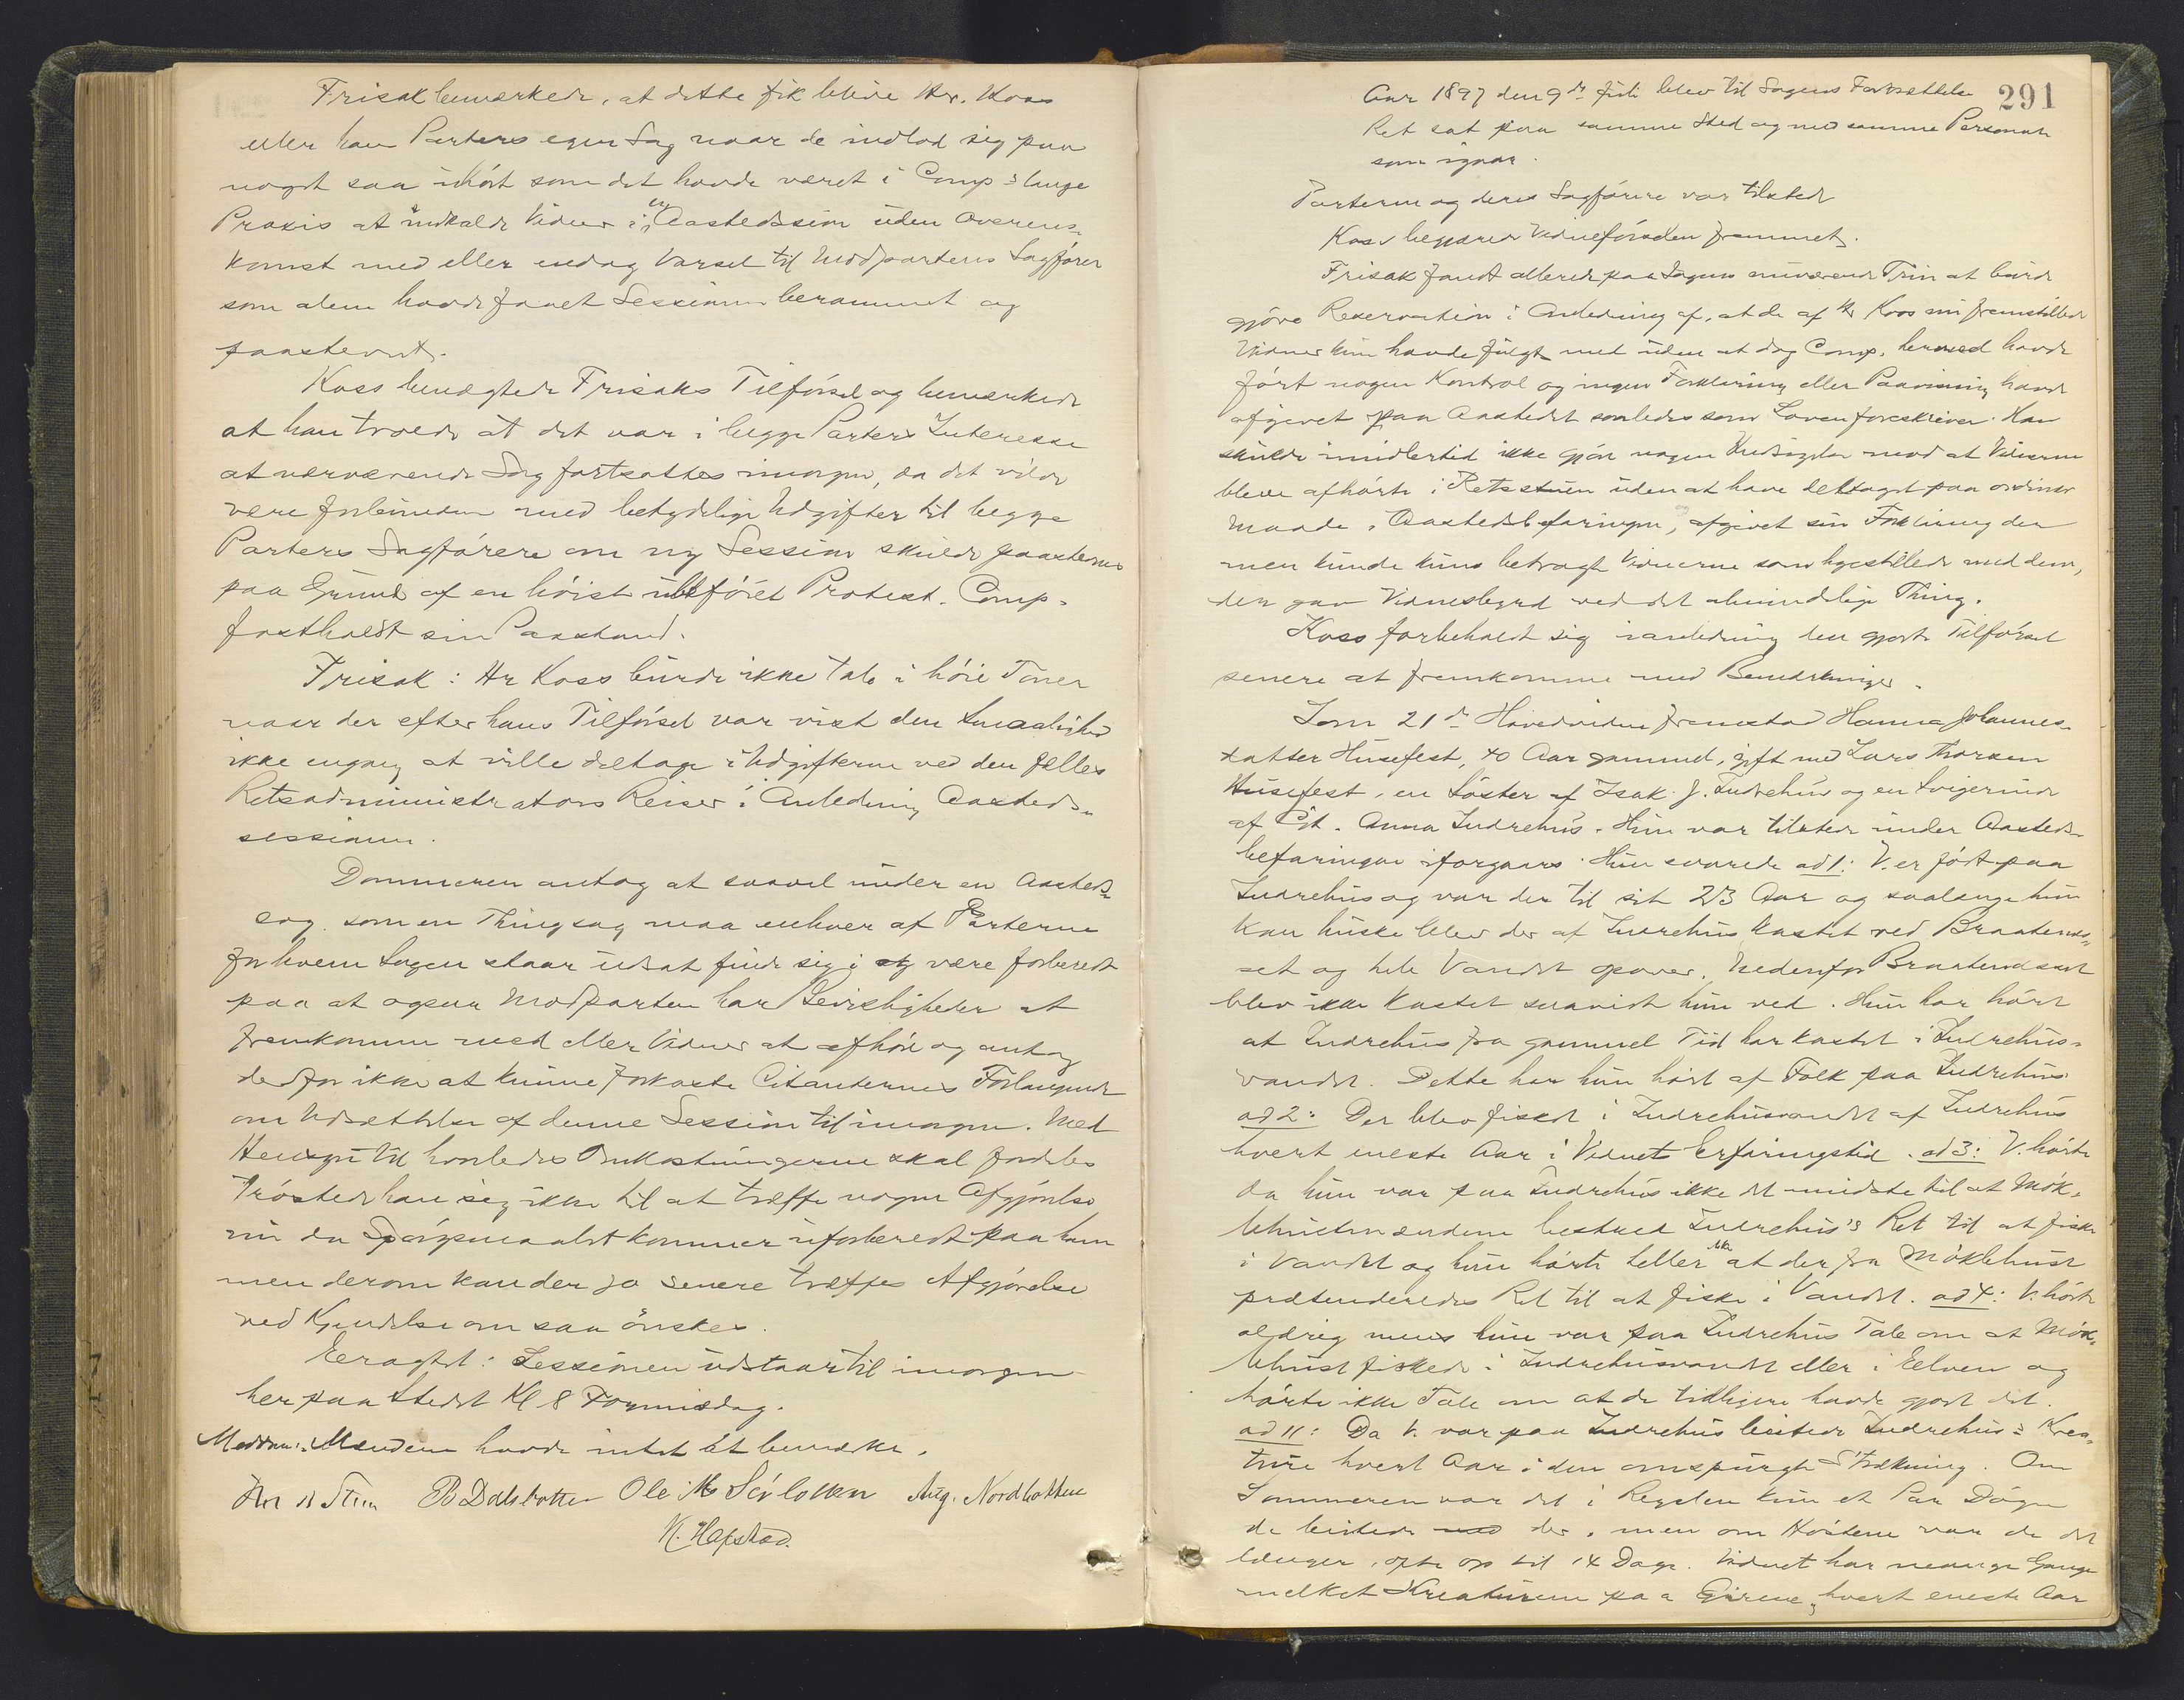 Frisak bemærkede, at dette fik blive Hr. Koss
eller hans Parters egen Sag naar de indlod sig paa
noget saa uhørt som det havde været i Comp's lange
Praxis at indkalde Vidner i en Aastedssession uden Overens-
komst med eller endog Varsel til Modpartens Sagfører
som alene havde faaet Sessionen berammet og
paastevnt.
Koss benægtede Frisaks Tilførsel og bemærkede
at han troede at det var i begge Parters Interesse
at nærværende Sag fortsattes imorgen, da det vilde
være forbunden med betydelige Udgifter til begge
Parters Sagførere om ny Session skulde paastevnes
paa Grund af en høist ubeføiet Protest. Comp.
fastholdt sin Paastand.
Frisak: Hr Koss burde ikke tale i høie Toner
naar der efter hans Tilførsel var vist den Smaalighed
ikke engang at ville deltage i Udgifterne ved den fælles
Retsadministrators Reiser i Anledning Aasteds-
sessionen.
Dommeren antog at saavel under en Aasteds-
sag som en Thingsag maa enhver af Parterne
for hvem Sagen staar ud at finde sig i at være forberedt
paa at ogsaa Modparten har Bevisligheder at
fremkomme med eller Vidner at afhøre og antog
derfor ikke at kunne forkaste Citanternes Forlangende
om Udsættelse af denne Session til imorgen. Med
Hensyn til hvorledes Omkostningerne skal fordeles
trøster han sig ikke til at træffe nogen Afgjørelse
nu da Spørgsmaalet kommer uforberedt paa ham
men derom kan der jo senere træffes Afgjørelse
ved Kjendelse om saa ønskes.
Eragtet: Sessionen udstaar til imorgen
her paa Stedet Kl 8 Formiddag.
Meddoms Mændene havde intet at bemærke.
B Dalsbotten Ole Ms Sørbotten Aug. Nordbotten
K. Hafstad.
291
Aar 1897 den 9de Juli blev til Sagens Fortsættelse
Ret sat paa samme Sted og med samme Personale
som igaar.
Parterne og deres Sagførere var tilstede
Koss begjærede Vidneførselen fremmet.
Frisak fandt allerede paa Sagens nuværende Trin at burde
gjøre Reservation i Anledning af, at de af Hr Koss nu fremstillede
Vidner kun havde fulgt med uden at dog Comp. hermed havde
ført nogen Kontrol og ingen Forklaring eller Paavisning havde
afgivet paa Aastedet saaledes som Loven foreskriver. Han
skulde imidlertid ikke gjøre nogen Indsigelse mod at Vidnerne
bleve afhørte i Retsstuen uden at have deltaget paa ordinær
Maade i Aastedsbefaringen, afgivet sin Forklaring der
men kunde kun betragte Vidnerne som ligestillede med dem,
der gav Vidnesbyrd ved det almindelige Thing.
Koss forbeholdt sig i anledning den gjorte Tilførsel
senere at fremkomme med Bemærkninger.
Som 21de Hovedvidne fremstod Hanna Johannes-
datter Husefest, 40 Aar gammel, gift med Lars Thorsen
Husefest, en Søster af Isak J. Indrehus og en Svigerinde
af Cit. Anna Indrehus. Hun var tilstede under Aasteds-
befaringen iforgaars. Hun svarede ad 1: V. er født paa
Indrehus og var der til sit 23 Aar og saalænge hun
kan huske blev der af Indrehus kastet ved Braatenæs-
set og hele Vandet opover. Nedenfor Braatenæsset
blev ikke kastet saavidt hun ved. Hun har hørt
at Indrehus fra gammel Tid har kastet i Indrehus-
vandet. Dette har hun hørt af Folk paa Indrehus
ad 2: Der blev fisket i Indrehusvandet af Indrehus
hvert eneste Aar i Vidnets Erfaringstid. ad 3: V. hørte
da hun var paa Indrehus ikke det mindste til at Møk-
lehusmændene bestred Indrehus's Ret til at fiske
i Vandet og hun hørte heller ikke at der fra Møklehust
prætenderedes Ret til at fiske i Vandet. ad 4: V. hørte
aldrig mens hun var paa Indrehus Tale om at Møk-
lehust fiskede i Indrehusvandet eller i Elven og
hørte ikke Tale om at de tidligere havde gjort det.
ad 11: Da V. var paa Indrehus beitede Indrehus's Krea-
ture hvert Aar i den omspurgte Strækning. Om
Sommeren var det i Regelen kun et Par Døgn
de beitede der, men om Høstene var de det
længer, ofte op til 14 Dage. Vidnet har mange Gange
melket Kreaturene paa hvert eneste Aar